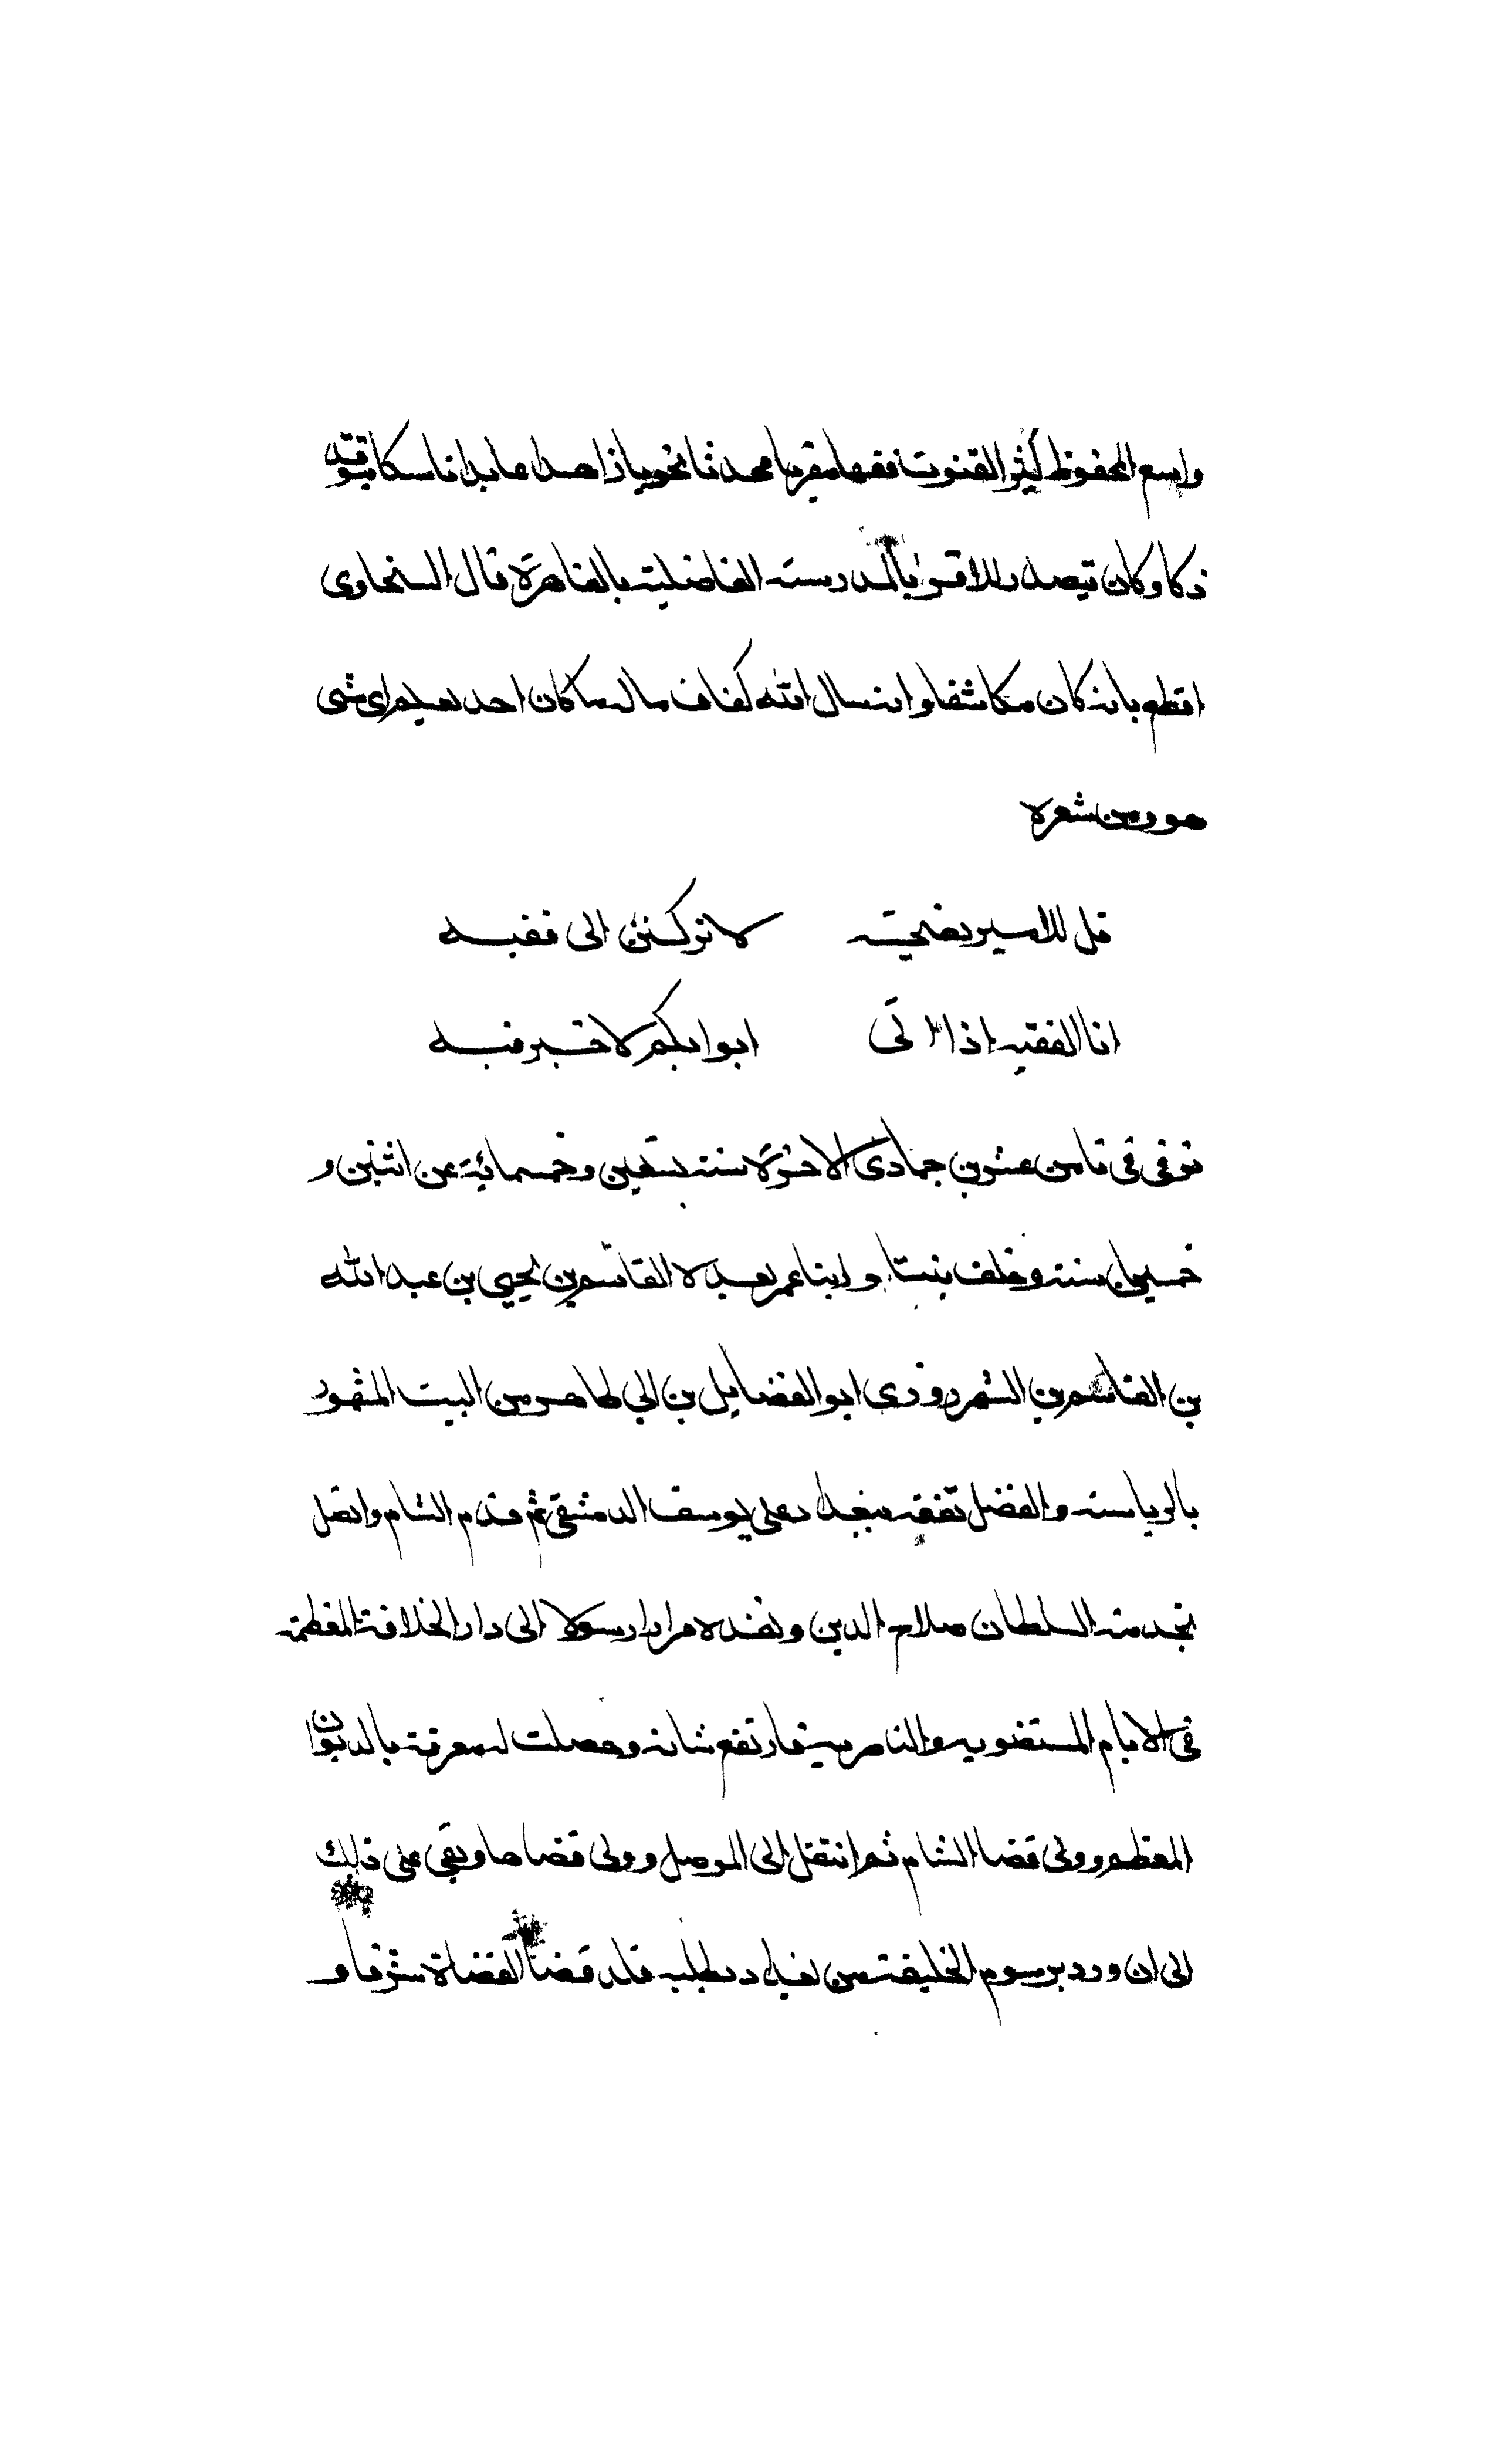 واسع المحفوظ كثير الفنون فقيها مقريا محدثا نحويا زاهدا عابدا ناسكا يتوقد
ذكا وكان تيصدر للاقرا بالمدرسته الفاضليته بالقاهرة قال السنحاوى
اقطع بانه كان مكاشفا وانه سال الله كفاف ماله ما كان احد يعلم اى شى
هو ومن شعره
قل للامير نصحيته لا تركنن الى فقيه
ان الفقيه اذا اتى ابوابكم لا خير فيه
توفى فى ثامن عشرين جمادى الاخرة سنته تسعين وخمسمائة عن اثنين و
خمسين سنته وخلف بنتا وابنا عمر بعده القاسم بن يحيى بن عبد الله
بن القاسم بن الشهرزورى ابو الفضايل بن ابي طاهر من البيت المشهور
بالرياسته والفضل تفقه ببغداد على يوسف الدمشقى ثم قدم الشام واتصل
بخدمته السلطان صلاح الدين ونفذه مرارا رسولا الى دار الخلافة المعظمة
فى الايام المستضويه والناصريه فارتفع شانه وحصلت له معرفة بالديوان
المعظم وولى قضا الشام ثم انتقل الى الموصل وولى قضاها وبقى على ذلك
الى ان ورد برسوم الخليفته من بغداد بطلبه قلد قضا القضاة شرقا و